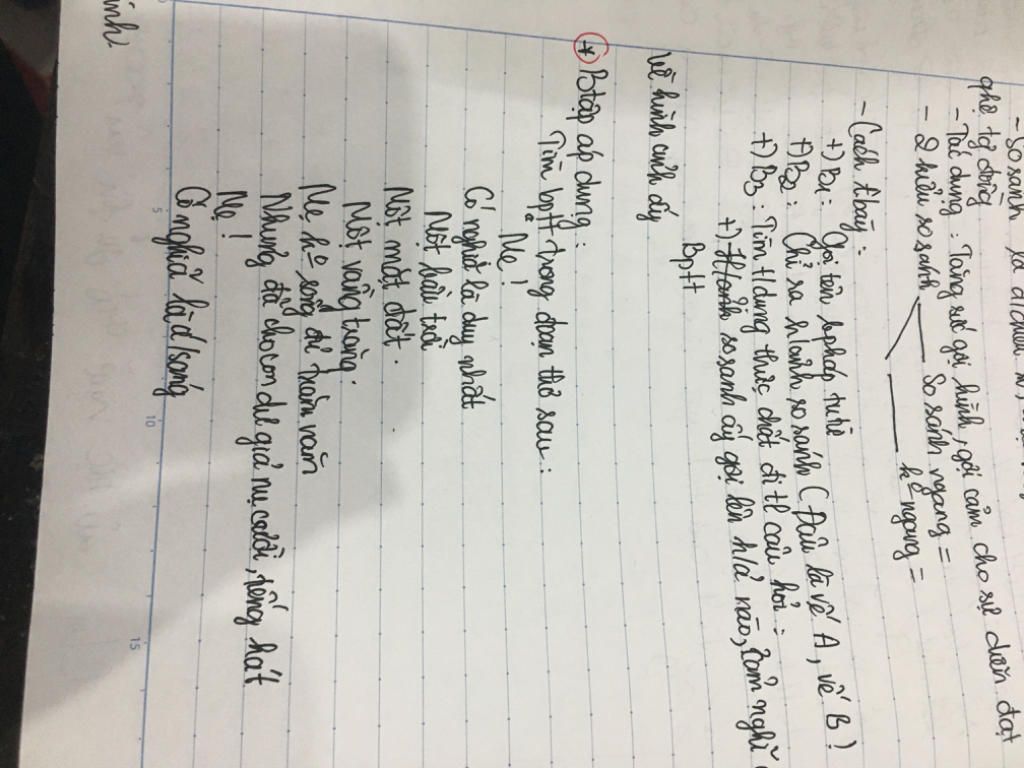 - So sánh là
ghệ tự đồng
- Tác dụng : Tăng sức gợi hình, gợi cảm cho sự diễn đạt
- 2 kiểu so sánh
So sánh ngang =
k° ngang =
- Cách t'bày :
+) B1 : Gọi tên b.pháp tu từ
+) B2 : Chỉ ra h/ảnh so sánh ( Đâu là vế A, vế B )
+) B3 : Tìm t/dụng thực chất đi tl câu hỏi :
+) H/ảnh so sánh ấy gợi lên h/ả nào, cảm nghĩ
Bptt
về hình ảnh ấy
* Btập áp dụng :
Tìm bptt trong đoạn thơ sau :
Mẹ !
Có nghĩa là duy nhất
Một bầu trời
Một mặt đất .
Một vầng trăng .
Mẹ k° sống đủ trăm năm
Nhưng đã cho con dư giả nụ cười, tiếng hát
Mẹ !
Có nghĩa là á/sáng